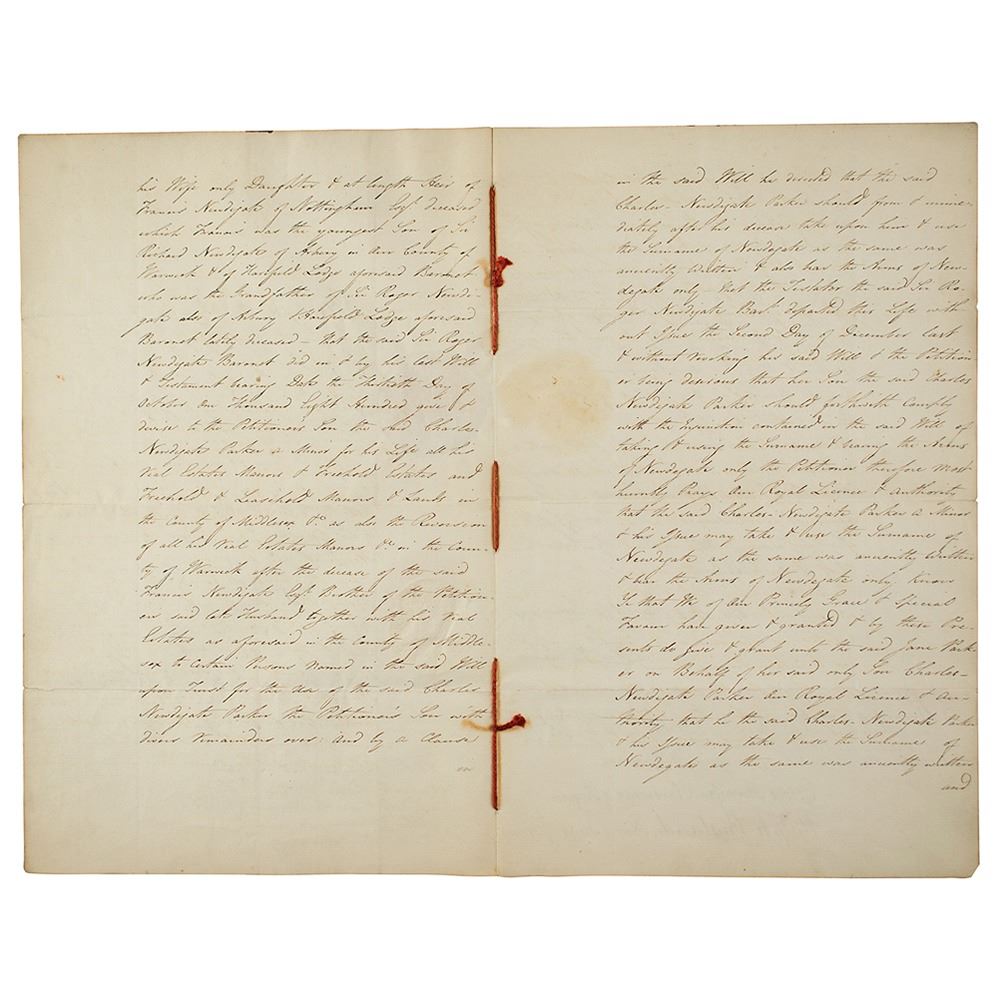 his Wife only Daughter & at length Heir of
Francis Newdigate of Nottingham Esqr. deceased
which Francis was the youngest Son of Sir
Richard Newdigate of Arbury in Our County of
Warwick & of Harefield Lodge aforesaid Baronet
who was the Grandfather of Sir Roger Newdi-
gate also of Arbury & Harefield Lodge aforesaid
Baronet lately deceased – that the said Sir Roger
Newdigate Baronet did in & by his last Will
& Testament bearing Date the Thirtieth Day of
October One Thousand Eight Hundred give &
devise to the Petitioners Son the said Charles-
Newdigate Parker a Minor for his Life all his
real Estates Manors & Freehold Estates and
Freehold & Leasehold Manors & Lands in
the County of Middlesex &c. as also the Reversion
of all his real Estates Manors &c. in the Coun-
ty of Warwick after the decease of the said
Francis Newdigate Esqr. Brother of the Petition-
ers said late Husband together with his real
Estates as aforesaid in the County of Middle-
sex to certain Persons named in the said Will
upon Trust for the use of the said Charles-
Newdigate Parker the Petitioner's Son with
divers remainders over: And by a Clause
in
in the said Will he directed that the said
Charles-Newdigate Parker should from & imme-
diately after his decease take upon him & use
the Surname of Newdegate as the same was
anciently written & also bear the Arms of New-
degate only – that the Testator the said Sir Ro-
ger Newdigate Bart. departed this Life with
out Issue the Second Day of December last
& without revoking his said Will & the Petition-
er being desirous that her Son the said Charles
Newdigate Parker should forthwith comply
with the Injunction contained in the said Will of
taking & using the Surname & bearing the Arms
of Newdegate only the Petitioner therefore most
humbly Prays Our Royal Licence & Authority
that the said Charles-Newdigate Parker a Minor
& his Issue may take & use the Surname of
Newdegate as the same was anciently written
& bear the Arms of Newdegate only Know
Ye that We of Our Princely Grace & Special
Favour have given & granted & by these Pre-
sents do give & grant unto the said Jane Park-
er on Behalf of her said only Son Charles-
Newdigate Parker Our Royal Licence & Au-
thority that he the said Charles-Newdigate Parker
& his Issue may take & use the Surname of
Newdegate as the same was anciently written
and